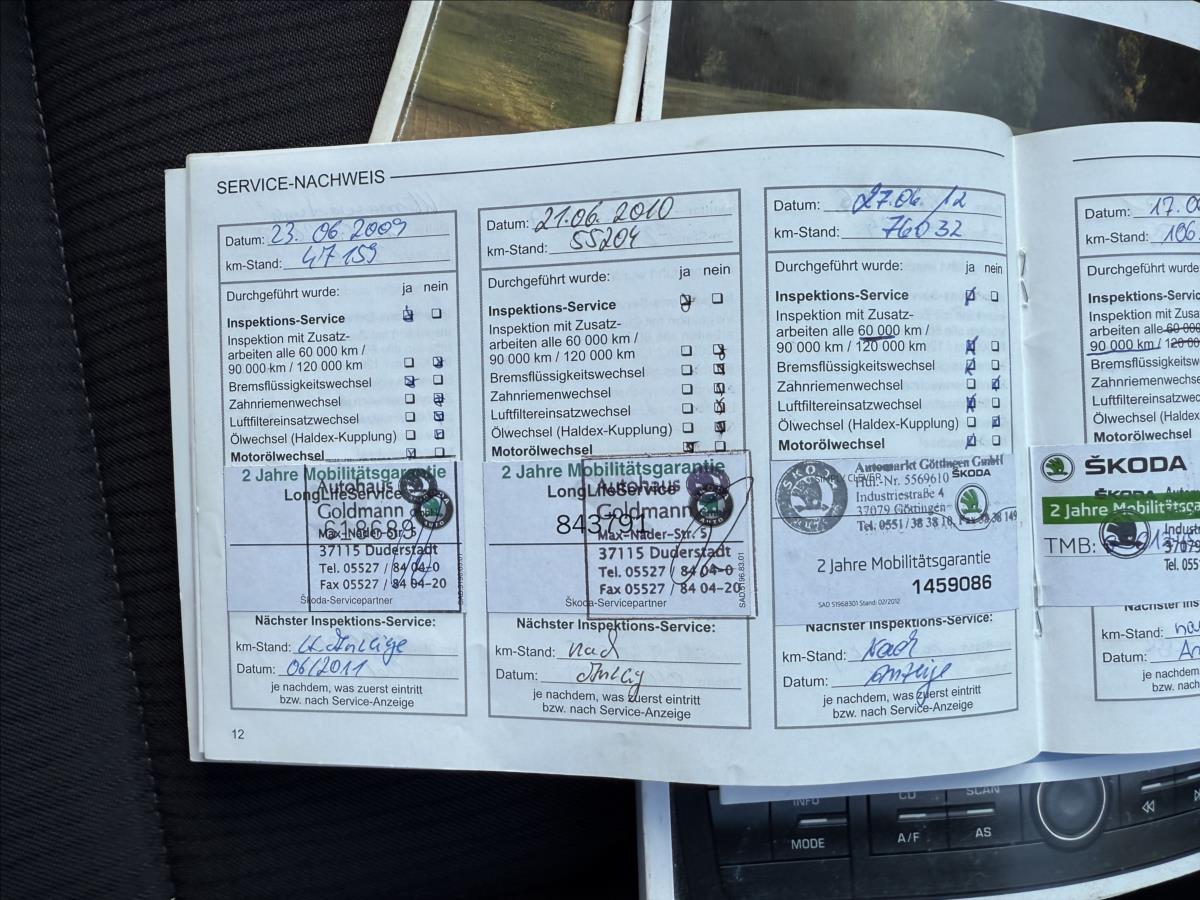 SERVICE-NACHWEIS
Datum: 23.06.2009
km-Stand: 47159
Durchgeführt wurde: ja nein
Inspektions-Service
Inspektion mit Zusatz-
arbeiten alle 60 000 km /
90 000 km / 120 000 km
Bremsflüssigkeitswechsel
Zahnriemenwechsel
Luftfiltereinsatzwechsel
Ölwechsel (Haldex-Kupplung)
Motorölwechsel
2 Jahre Mobilitätsgarantie
LongLifeService
Autohaus
Goldmann
618689
Max-Näder-Str. 5
37115 Duderstadt
Tel. 05527 / 84 04-0
Fax 05527 / 84 04-20
Škoda-Servicepartner
Nächster Inspektions-Service:
km-Stand:
Datum: 06/2011
je nachdem, was zuerst eintritt
bzw. nach Service-Anzeige
12
Datum: 21.06.2010
km-Stand: 55204
Durchgeführt wurde: ja nein
Inspektions-Service
Inspektion mit Zusatz-
arbeiten alle 60 000 km /
90 000 km / 120 000 km
Bremsflüssigkeitswechsel
Zahnriemenwechsel
Luftfiltereinsatzwechsel
Ölwechsel (Haldex-Kupplung)
Motorölwechsel
2 Jahre Mobilitätsgarantie
LongLifeService
Autohaus
Goldmann
843791
Max-Näder-Str. 5
37115 Duderstadt
Tel. 05527 / 84 04-0
Fax 05527 / 84 04-20
SAD.5196.83.01
Škoda-Servicepartner
Nächster Inspektions-Service:
km-Stand: nach
Datum:
je nachdem, was zuerst eintritt
bzw. nach Service-Anzeige
Datum: 27.06.12
km-Stand: 76032
Durchgeführt wurde: ja nein
Inspektions-Service
Inspektion mit Zusatz-
arbeiten alle 60 000 km /
90 000 km / 120 000 km
Bremsflüssigkeitswechsel
Zahnriemenwechsel
Luftfiltereinsatzwechsel
Ölwechsel (Haldex-Kupplung)
Motorölwechsel
Automarkt Göttingen GmbH
SIMPLY CLEVER
ŠKODA
5569610
Industriestraße 4
37079 Göttingen
Tel. 0551 / 38 38 10, Fax 38 38 149
2 Jahre Mobilitätsgarantie
1459086
SAD 51968301 Stand: 02/2012
Nächster Inspektions-Service:
km-Stand: Nach
Datum: Anzeige
je nachdem, was zuerst eintritt
bzw. nach Service-Anzeige
Datum: 17.0
km-Stand: 106.
Durchgeführt wurde
Inspektions-Service
Inspektion mit Zusa
arbeiten alle 60 000
90 000 km / 120 00
Bremsflüssigkeitswe
Zahnriemenwechsel
Luftfiltereinsatzwec
Ölwechsel (Haldex-
Motorölwechsel
ŠKODA
2 Jahre Mobilitätsga
TMB:
Indust
37079
Tel. 055
Nächster Ins
km-Stand: na
Datum: An
je nac
bzw.
INFO
CD
SCAN
MODE
A/F
AS